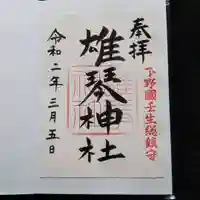 奉拝
下野國壬生總鎮守
雄琴神社
令和二年三月五日